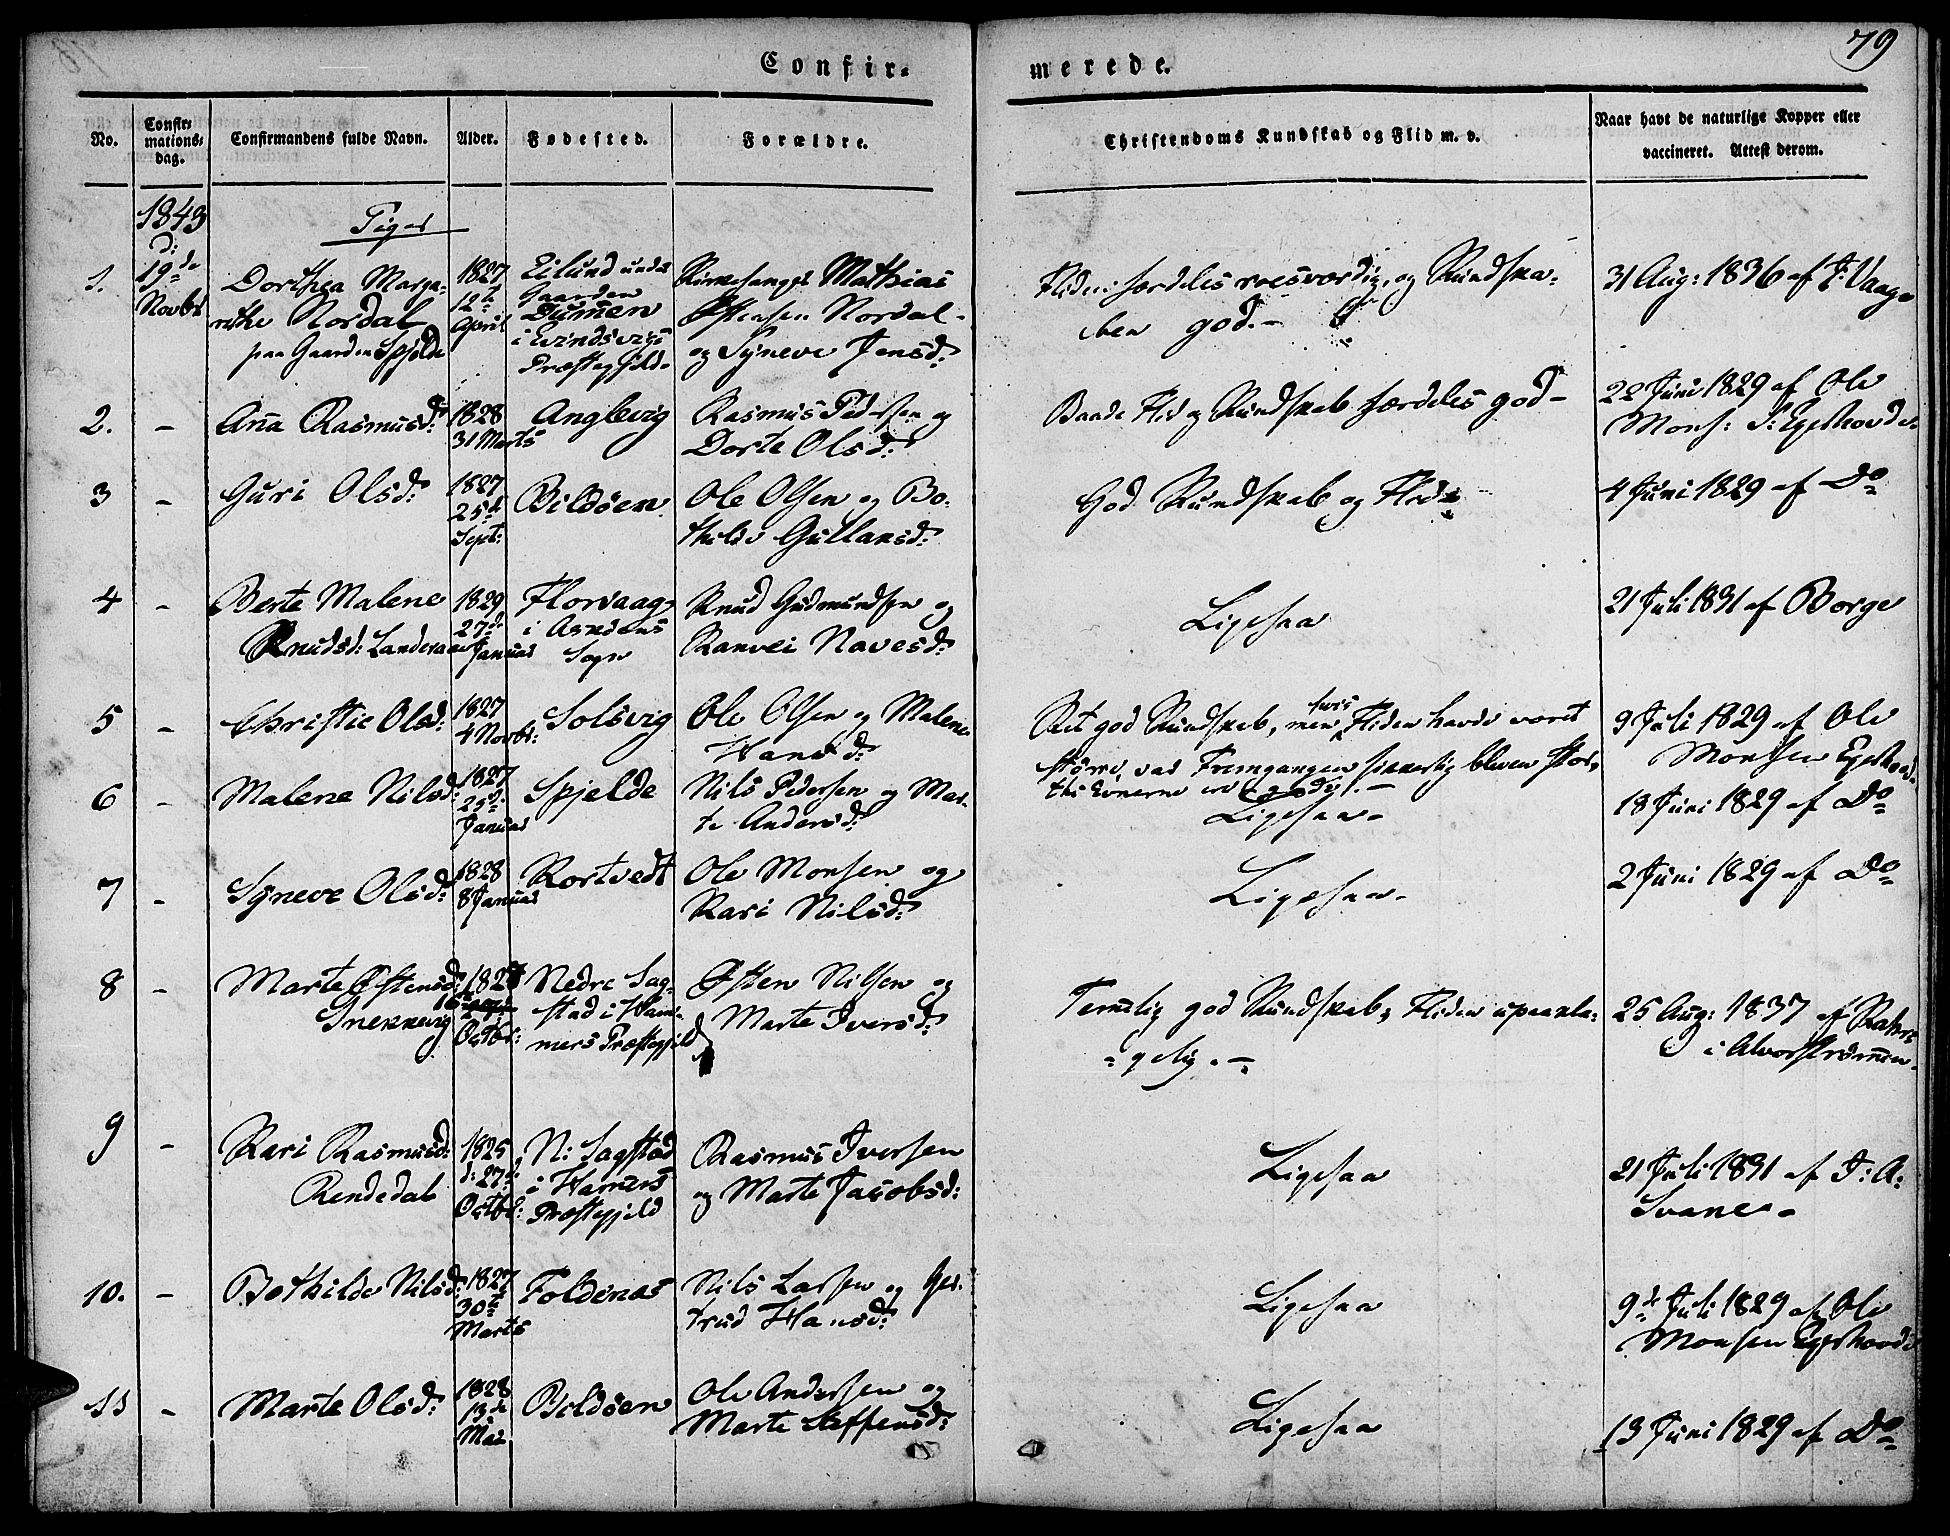 79
Confir- merede.
No. Confirmations- dag. Confirmandens fulde Navn. Alder. Fødested. Forældre. Christendoms Kundskab og Flid m. v. Naar havt de naturlige Kopper eller vaccineret. Attest derom.
1843 Piger
d:
1. 19de Novbr Dorthea Marga-
rethe Nordal
paa Gaarden Spjelde
1827
12te
April
Eilund under
Gaarden
Dumen
i Evindsvigs
Præstegjeld
Kirkesanger Mathias
Østensen Nordal
og Syneve Jensd:
Fliden særdeles roesværdig, og Kundska-
ben god.-
31 Aug: 1836 af J: Vaage
2. - Anna Rasmusd: 1828
31 Marts
Anglevig
Rasmus Pedersen og
Dorte Olsd:
Baade Flid og Kundskab særdeles god-
22 Juni 1829 af Ole
Mons: S: Egeshovde
3 - Guri Olsd: 1827
25de
Septr:
Bildöen
Ole Olsen og Bo-
thilde Gullaksd:
God Kundskab og Flid
4 Juni 1829 af Do
4 - Berte Malene
Knudsd: Landeraas
1829
27de
Januar
Florvaag
i Askøens
Sogn
Knud Gudmundsen og
Ranvei Navesd:
Ligesaa
21 Juli 1831 af Borge
5 - Christie Olsd: 1827
4 Novbr:
Solsvig
Ole Olsen og Malene
Hansd:
Ret god Kundskab, men hvis Fliden havde været
större, var Fremgangen sikkerlig bleven stor,
thi Evnerne ere gode.-
9 Juli 1829 af Ole
Monsen Egeshovde
6 - Malene Nilsd: 1827
25de
Januar
Spjelde
Nils Pedersen og Mar-
te Andersd:
Ligesaa-
18 Juni 1829 af Do
7 - Syneve Olsd: 1828
8 Januar
Kortvedt
Ole Monsen og
Kari Nilsd:
Ligesaa-
2 Juni 1829 af Do
8 - Marte Østensd:
Snekkevig
1827
16de
Octbr:
Nedre Sag-
stad i Ham-
mers Præstegjeld
Østen Nilsen og
Marte Iversd:
Temelig god Kundskab, Fliden upaakla-
gelig.-
25 Aug: 1837 af
i Alvorströmmen
9 - Kari Rasmusd:
Rendedal
1825
d: 27de
Octbr:
N: Sagstad
i Hamers
Præstegjeld
Rasmus Iversen
og Marte Jacobsd:
Ligesaa
21 Juli 1831 af J: A:
Svane-
10. - Bothilde Nilsd: 1827
30te
Marts
Foldenæs
Nils Larsen og Ger-
trud Hansd:
Ligesaa
9de Juli 1829 af Ole
Monsen Egeshovde
11 - Marte Olsd: 1828
13de
Mai
Bildöen
Ole Andersen og
Marte Steffensd:
Ligesaa
13 Juni 1829 af Do